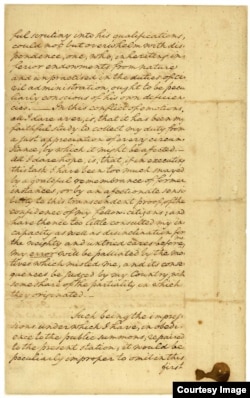 ful scrutiny into his qualifications,
could not but overwhelm with dis-
pondence, one, who, inheriting in-
ferior endowments from nature
and unpractised in the duties of ci-
vil administration, ought to be pecu-
liarly conscious of his own deficien-
cies. In this conflict of emotions,
all I dare aver, is, that it has been my
faithful study to collect my duty from
a just appreciation of every circum-
stance, by which it might be affected.
All I dare hope, is, that, if in executing
this task I have been too much swayed
by a grateful remembrance of former
instances, or by an affectionate sensi-
bility to this transcendent proof of the
confidence of my fellow citizens; and
have thence too little consulted my in-
capacity as well as disinclination for
the weighty and untried cares before me;
my error will be palliated by the mo-
tives which misled me, and its conse-
quences be judged by my Country, with
some share of the partiality in which
they originated.
Such being the impres-
sions under which I have, in obedi-
ence to the public summons, repaired
to the present station; it would be
peculiarly improper to omit in this
first
Courtesy Image